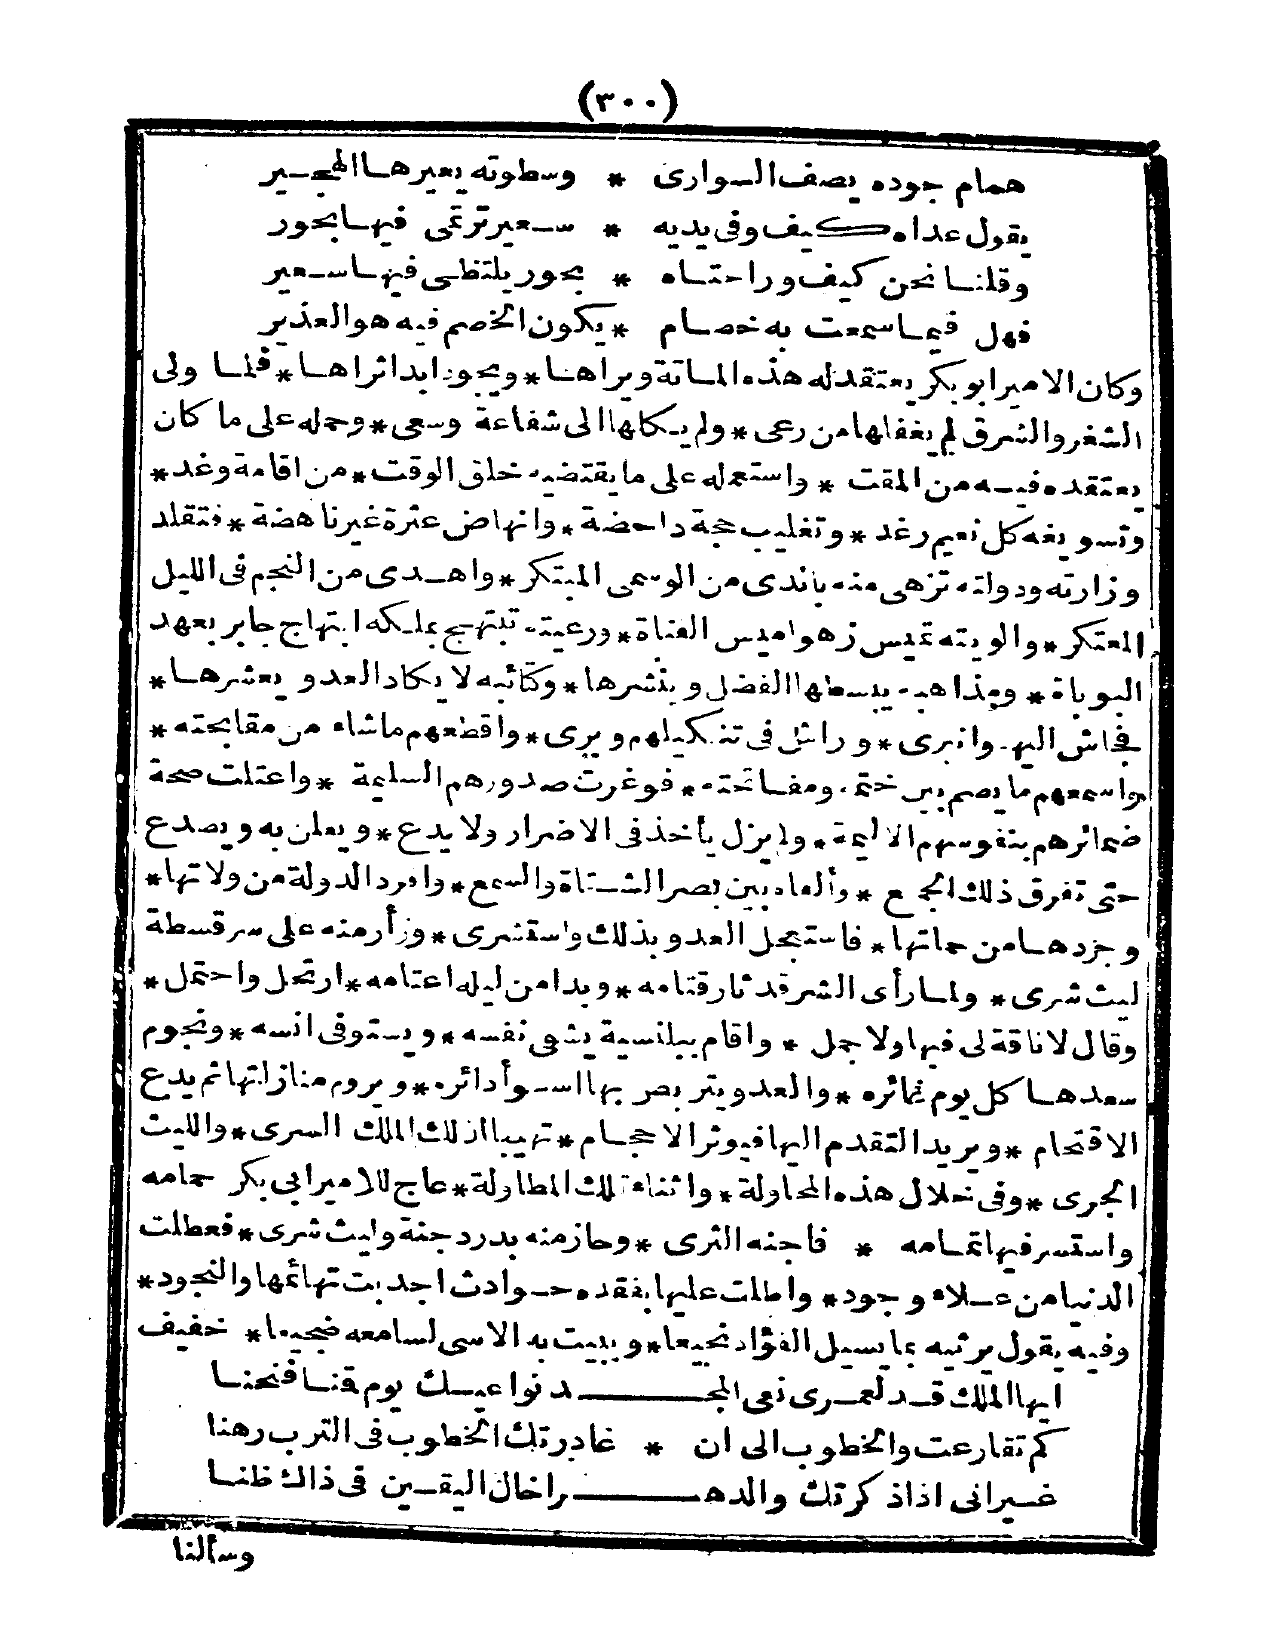 (٣٠٠)
همام جوده يصف السوارى * وسطوته يعيرها الهجير
يقول عداه كيف وفى يديه * سعير ترتمى فيها بحور
وقلنا نحن كيف وراحتاه * بحور يلتظى فيها سعير
فهل فيما سمعت به خصام * يكون الخصم فيه هو العذير
وكان الامير ابو بكر يعتقد له هذه الماتة ويراها * ويجود ابدا ثراها * فلما ولى
الثغر والشرق لم يغفلها من رعى * ولم يكلها الى شفاعة وسعى * وحمله على ما كان
يعتقده فيه من المقت * واستعمله على ما يقتضيه خلق الوقت * من اقامة وغد *
وتسويغه كل نعيم رغد * وتغليب حجة داحضة * وانهاض عثرة غير ناهضة * فتقلد
وزارته ودولته تزهى منه باندى من الوسمى المبتكر * واهدى من النجم فى الليل
المعتكر * والويته تميس زهوا ميس الفتاة * ورعيته تبتهج بملكه ابتهاج جابر بعهد
البوباة * ومذاهبه يبسطها الفضل وينشرها * وكتائبه لا يكاد العدو يعشرها *
فجاش اليه وانبرى * وراش فى تنكيلهم وبرى * واقطعهم ما شاء من مقابحته *
واسمعهم ما يصم بين ختمه ومفاتحته * فوغرت صدورهم السليمة * واعتلت صحة
ضمائرهم بنفوسهم الاليمة * ولم يزل يأخذ فى الاضرار ولا يدع * ويعلن به ويصدع
حتى تفرق ذلك الجمع * وألفاه بين بصر الشتاة والسمع * وافرد الدولة من ولاتها *
وجردها من حماتها * فاستعجل العدو بذلك واستشرى * وزأر منه على سرقسطة
ليث شرى * ولما رأى الشر قد ثار قتامه * وبدا من ليله اعتامه * ارتحل واحتمل *
وقال لا ناقة لى فيها ولا جمل * واقام ببلنسية يشفى نفسه * ويستوفى انسه * ونجوم
سعدها كل يوم غائره * والعدو يتربص بها اسوأ دائره * ويروم منازلتها ثم يدع
الاقتحام * ويريد التقدم اليها فيؤثر الاحجام * تهيبا لذلك الملك السرى * والليث
الجرى * وفى خلال هذه المحاولة * واثناء تلك المطاولة * عاج للامير ابى بكر حمامه
واستسر فيها تمامه * فاجنه الثرى * وحاز منه بدر دجنة وليث شرى * فعطلت
الدنيا من علاء وجود * واطلت عليها بفقده حوادث اجدبت تهائمها والنجود *
وفيه يقول يرثيه بما يسيل الفؤاد نجيعا * ويبيت به الاسى لسامعه ضجيعا * خفيف
ايها الملك قد لعمرى نعى المجـــــد نواعيك يوم قمنا فنحنا
كم تقارعت والخطوب الى ان * غادرتك الخطوب فى الترب رهنا
غير انى اذا ذكرتك والدهـــــر اخال اليقين فى ذاك ظنا
وسألنا